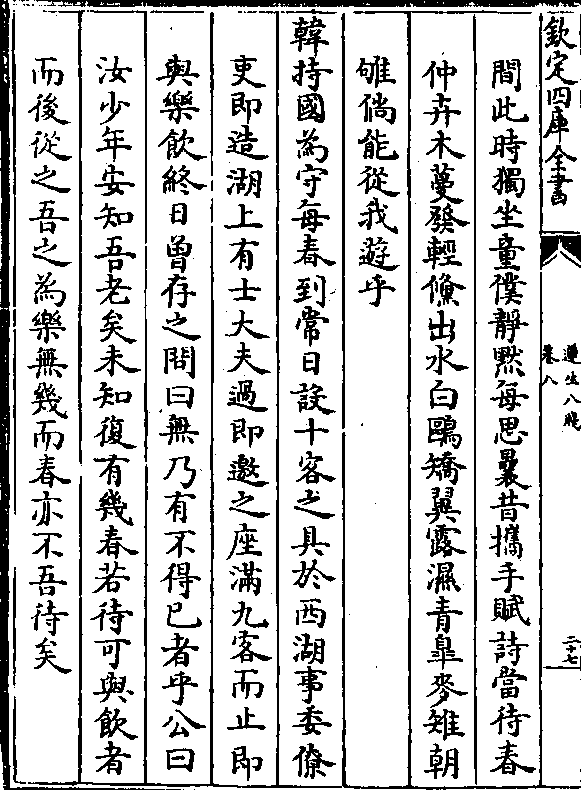 欽定四庫全書
遵生八牋
卷八
二十七
間此時獨坐童僕靜黙每思曩昔攜手賦詩當待春
仲卉木蔓發輕鯈出水白鷗矯翼露濕青臯麥雉朝
雊倘能從我遊乎
韓持國為守每春到常日設十客之具於西湖事委僚
吏即造湖上有士大夫過即邀之座滿九客而止即
與樂飲終日曾存之問曰無乃有不得已者乎公曰
汝少年安知吾老矣未知復有幾春若待可與飲者
而後從之吾之為樂無幾而春亦不吾待矣